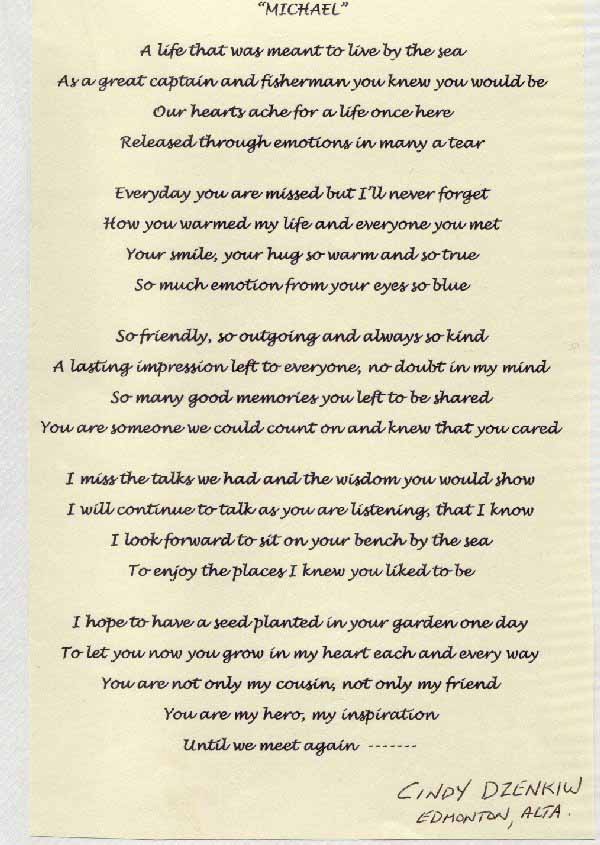 "MICHAEL"
A life that was meant to live by the sea
As a great captain and fisherman you knew you would be
Our hearts ache for a life once here
Released through emotions in many a tear
Everyday you are missed but I'll never forget
How you warmed my life and everyone you met
Your smile, your hug so warm and so true
So much emotion from your eyes so blue
So friendly, so outgoing and always so kind
A lasting impression left to everyone, no doubt in my mind
So many good memories you left to be shared
You are someone we could count on and knew that you cared
I miss the talks we had and the wisdom you would show
I will continue to talk as you are listening, that I know
I look forward to sit on your bench by the sea
To enjoy the places I knew you liked to be
I hope to have a seed planted in your garden one day
To let you now you grow in my heart each and every way
You are not only my cousin, not only my friend
You are my hero, my inspiration
Until we meet again -------
CINDY DZENKIW
EDMONTON, ALTA.